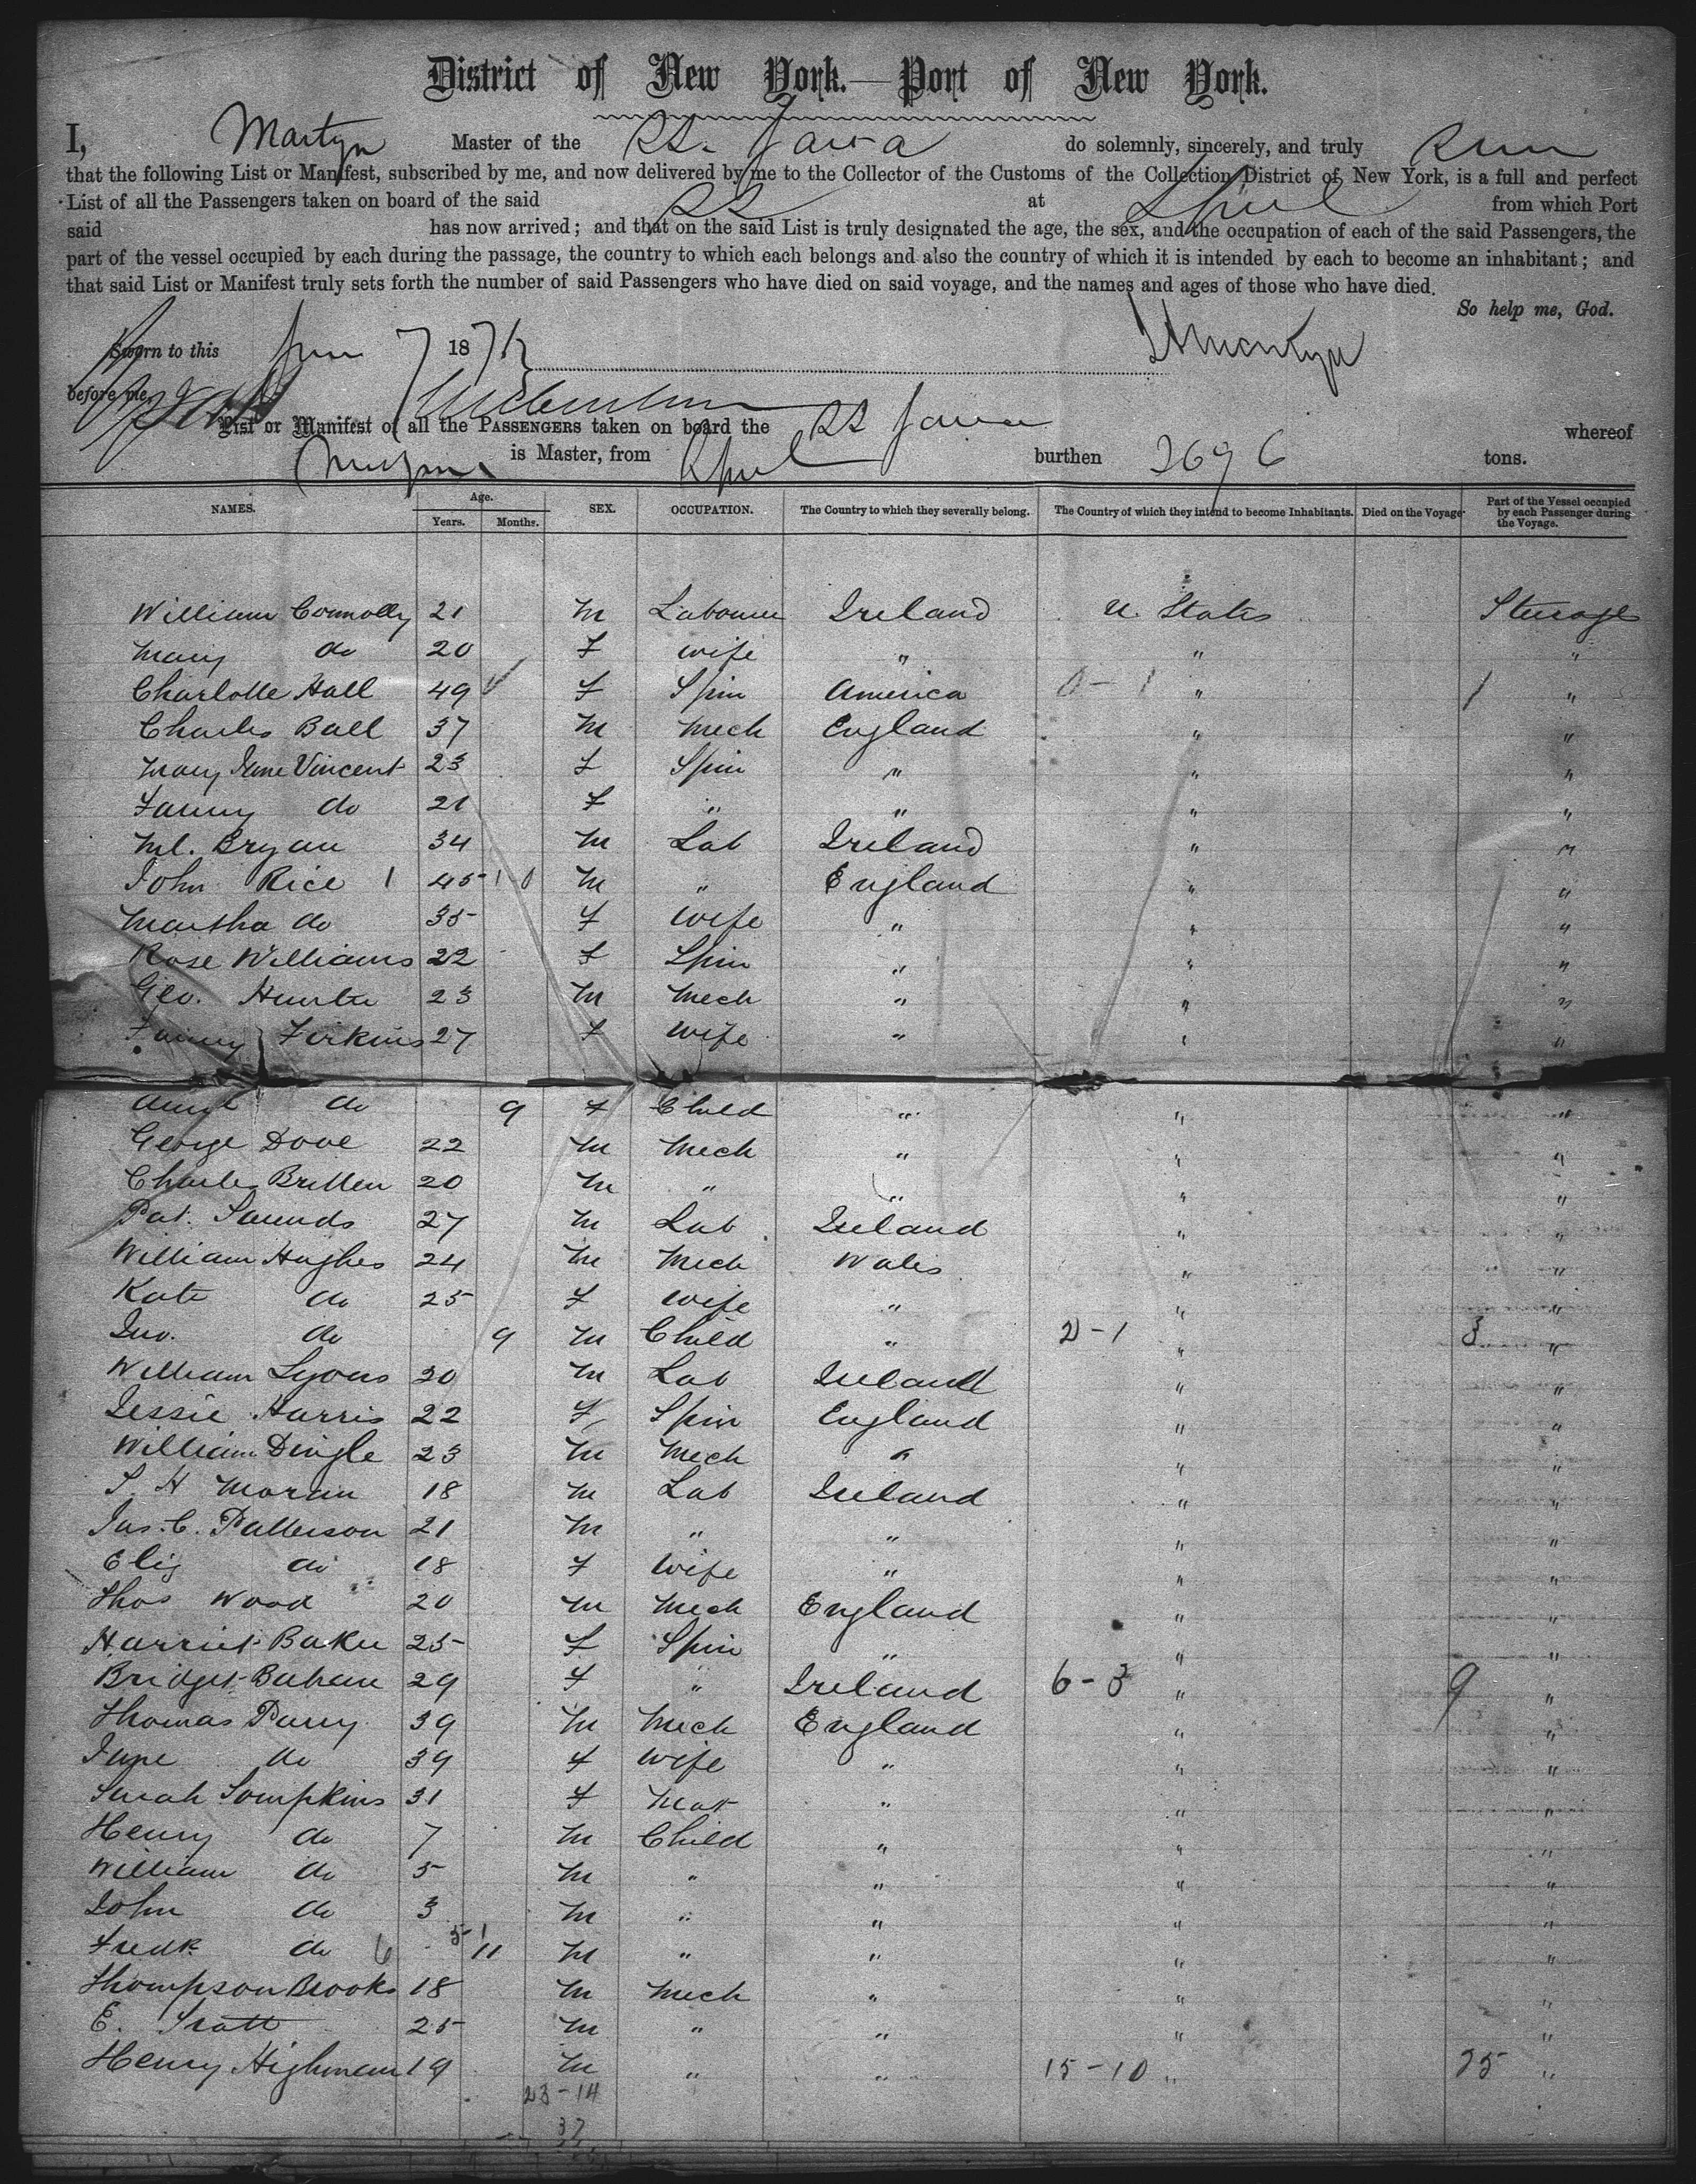 District of New York.—Port of New York.
I, Martyn Master of the SS. Java do solemnly, sincerely, and truly
that the following List or Manifest, subscribed by me, and now delivered by me to the Collector of the Customs of the Collection District of New York, is a full and perfect
List of all the Passengers taken on board of the said SS at Lpool from which Port
said has now arrived; and that on the said List is truly designated the age, the sex, and the occupation of each of the said Passengers, the
part of the vessel occupied by each during the passage, the country to which each belongs and also the country of which it is intended by each to become an inhabitant; and
that said List or Manifest truly sets forth the number of said Passengers who have died on said voyage, and the names and ages of those who have died.
So help me, God.
Sworn to this June 7 187
before me,
List or Manifest of all the PASSENGERS taken on board the SS Java whereof
Martyn is Master, from Lpool burthen 2696 tons.
NAMES. Age. Years. Months. SEX. OCCUPATION. The Country to which they severally belong. The Country of which they intend to become Inhabitants. Died on the Voyage Part of the Vessel occupied by each Passenger during the Voyage.
William Connolly 21 M Labourer Ireland U. States Steerage
Mary do 20 F wife " " "
Charlotte Hall 49 F Spin America 0-1 " 1 "
Charles Ball 37 M Mech England " "
Mary Jane Vincent 23 F Spin " " "
Fanny do 21 F " " " "
Ml. Bryan 34 M Lab Ireland " "
John Rice 1 45 1-0 M " England " "
Martha do 35 F wife " " "
Rose Williams 22 F Spin " " "
Geo. Hunter 23 M Mech " " "
Fanny Firkins 27 F wife " " "
do 9 F Child " " "
George Dove 22 M Mech " " "
Charles Britten 20 M " " " "
Pat. Saunds 27 M Lab Ireland " "
William Hughes 24 M Mech Wales " "
Kate do 25 F wife " " "
Jno. do 9 M Child " 2-1 " 3 "
William Lyons 20 M Lab Ireland " "
Jessie Harris 22 F Spin England " "
William Dingle 23 M Mech " " "
S. H Moran 18 M Lab Ireland " "
Jas. C. Patterson 21 M " " " "
Eliz do 18 F wife " " "
Thos Wood 20 M Mech England " "
Harriet Baker 25 F Spin " " "
Bridget 29 F " Ireland 6-3 " 9 "
Thomas Parry 39 M Mech England " "
Jane do 39 F wife " " "
Sarah Tompkins 31 F Mat " " "
Henry do 7 M Child " " "
William do 5 M " " " "
John do 3 M " " " "
Fredk. do 6 5-1 11 M " " " "
Thompson Brooks 18 M Mech " " "
E. Tratt 25 M " " " "
Henry Highman 19 M " " 15-10 " 25 "
23-14
37